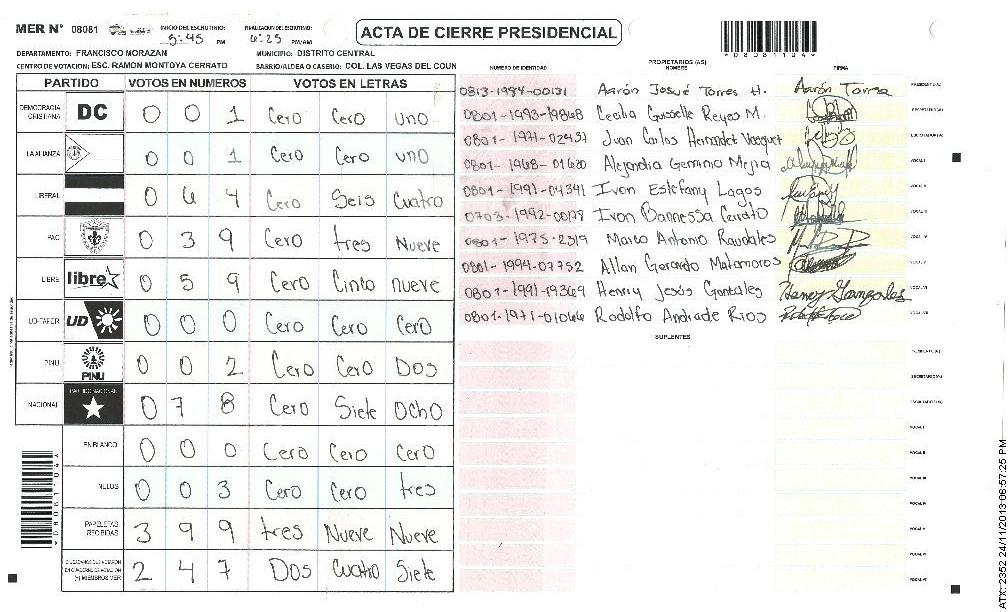 MER N° 08081 INICIO DEL ESCRUTINIO: 5:45 PM FINALIZACION DEL ESCRUTINIO: 6:25 PM/AM
ACTA DE CIERRE PRESIDENCIAL
*08081104*
DEPARTAMENTO: FRANCISCO MORAZAN MUNICIPIO: DISTRITO CENTRAL
CENTRO DE VOTACION: ESC. RAMON MONTOYA CERRATO BARRIO/ALDEA O CASERIO: COL. LAS VEGAS DEL COUN
PARTIDO VOTOS EN NUMEROS VOTOS EN LETRAS
DEMOCRACIA CRISTIANA DC 0 0 1 Cero Cero uno
LA ALIANZA 0 0 1 Cero Cero uno
LIBERAL 0 6 4 Cero Seis Cuatro
PAC 0 3 9 Cero tres Nueve
LIBRE libre 0 5 9 Cero Cinco nueve
UD-FAPER UD 0 0 0 Cero Cero Cero
PINU PINU 0 0 2 Cero Cero Dos
NACIONAL PARTIDO NACIONAL 0 7 8 Cero Siete Ocho
EN BLANCO 0 0 0 Cero Cero Cero
NULOS 0 0 3 Cero Cero tres
PAPELETAS RECIBIDAS 3 9 9 tres Nueve Nueve
CIUDADANOS QUE VOTARON EN CUADERNO DE VOTACION (+) MIEMBROS MER 2 4 7 Dos Cuatro Siete
*08081104*
PROPIETARIOS (AS)
NUMERO DE IDENTIDAD NOMBRE FIRMA
0813-1984-00131 Aarón Josué Torres H. Aarón Torres PRESIDENTE(A)
0801-1993-19868 Cecilia Gusselle Reyes M. SECRETARIO(A)
0801-1971-02451 Juan Carlos Hernandez Vasquez ESCRUTADOR(A)
0801-1968-01620 Alejandra Germinia Mejia VOCAL I
0801-1991-04341 Ivon Estefany Lagos VOCAL II
0703-1992-00178 Ivon Bannessa Cerrato VOCAL III
0801-1975-2319 Marco Antonio Raudales VOCAL IV
0801-1994-07752 Allan Gerardo Matamoros VOCAL V
0801-1991-19369 Henrry Jesús Gonzales Henry Gonzales VOCAL VI
0801-1971-01066 Rodolfo Andrade Rios VOCAL VII
SUPLENTES
PRESIDENTE(A)
SECRETARIO(A)
ESCRUTADOR(A)
VOCAL I
VOCAL II
VOCAL III
VOCAL IV
VOCAL V
VOCAL VI
VOCAL VII
ATX:2352 24/11/2013-06:57:25 PM